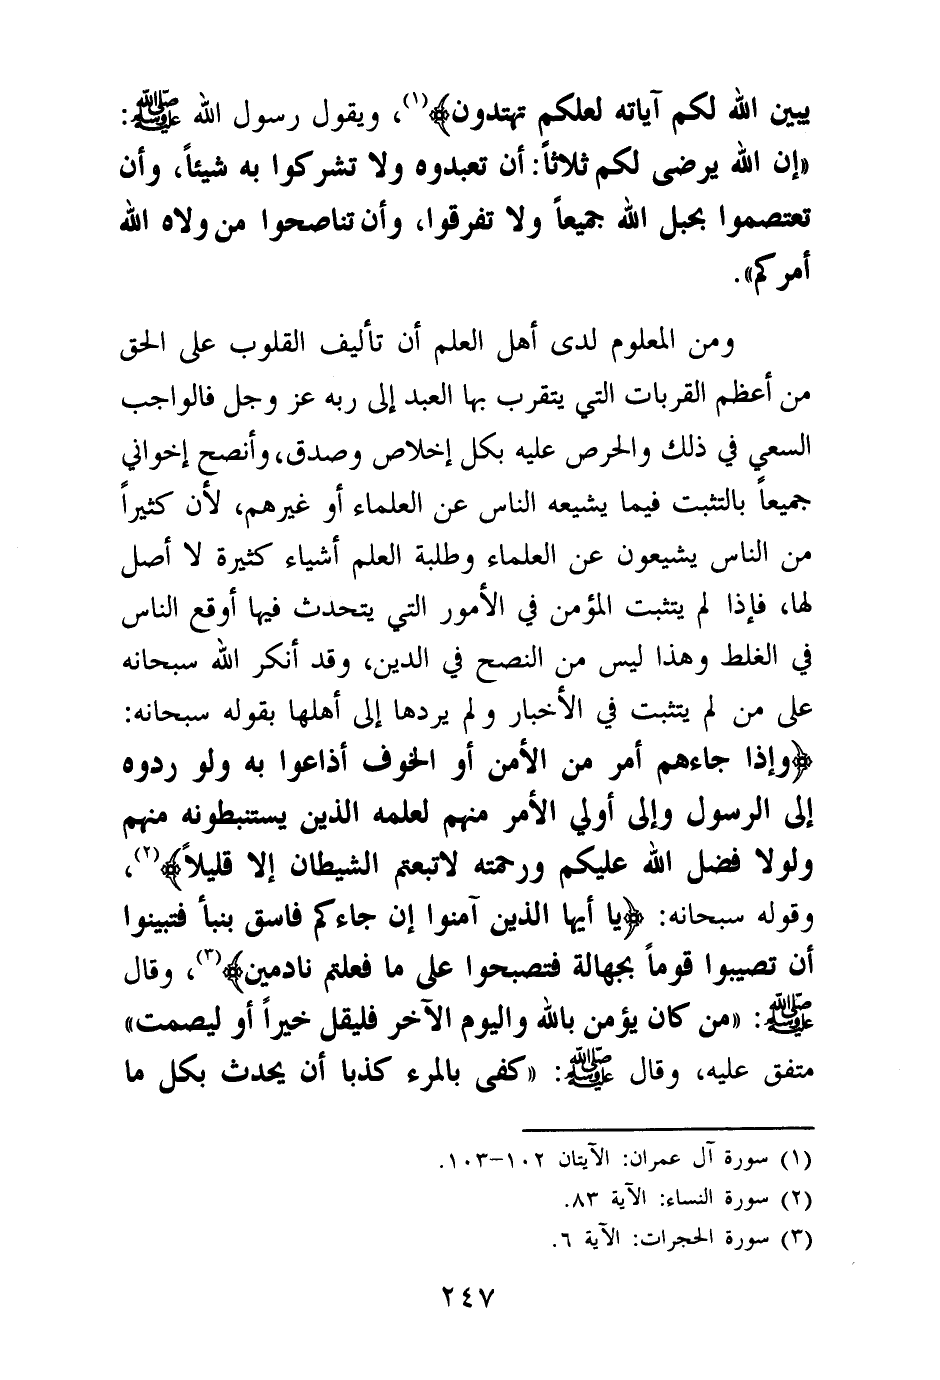 يبين الله لكم آياته لعلكم تهتدون﴾(١)، ويقول رسول الله ﷺ:
«إن الله يرضى لكم ثلاثاً: أن تعبدوه ولا تشركوا به شيئاً، وأن
تعتصموا بحبل الله جميعاً ولا تفرقوا، وأن تناصحوا من ولاه الله
أمركم».
ومن المعلوم لدى أهل العلم أن تأليف القلوب على الحق
من أعظم القربات التي يتقرب بها العبد إلى ربه عز وجل فالواجب
السعي في ذلك والحرص عليه بكل إخلاص وصدق، وأنصح إخواني
جميعاً بالتثبت فيما يشيعه الناس عن العلماء أو غيرهم، لأن كثيراً
من الناس يشيعون عن العلماء وطلبة العلم أشياء كثيرة لا أصل
لها، فإذا لم يتثبت المؤمن في الأمور التي يتحدث فيها أوقع الناس
في الغلط وهذا ليس من النصح في الدين، وقد أنكر الله سبحانه
على من لم يتثبت في الأخبار ولم يردها إلى أهلها بقوله سبحانه:
﴿وإذا جاءهم أمر من الأمن أو الخوف أذاعوا به ولو ردوه
إلى الرسول وإلى أولي الأمر منهم لعلمه الذين يستنبطونه منهم
ولولا فضل الله عليكم ورحمته لاتبعتم الشيطان إلا قليلاً﴾(٢)،
وقوله سبحانه: ﴿يا أيها الذين آمنوا إن جاءكم فاسق بنبأ فتبينوا
أن تصيبوا قوماً بجهالة فتصبحوا على ما فعلتم نادمين﴾(٣)، وقال
ﷺ: «من كان يؤمن بالله واليوم الآخر فليقل خيراً أو ليصمت»
متفق عليه، وقال ﷺ: «كفى بالمرء كذبا أن يحدث بكل ما
(١) سورة آل عمران: الآيتان ١٠٢–١٠٣.
(٢) سورة النساء: الآية ٨٣.
(٣) سورة الحجرات: الآية ٦.
٢٤٧